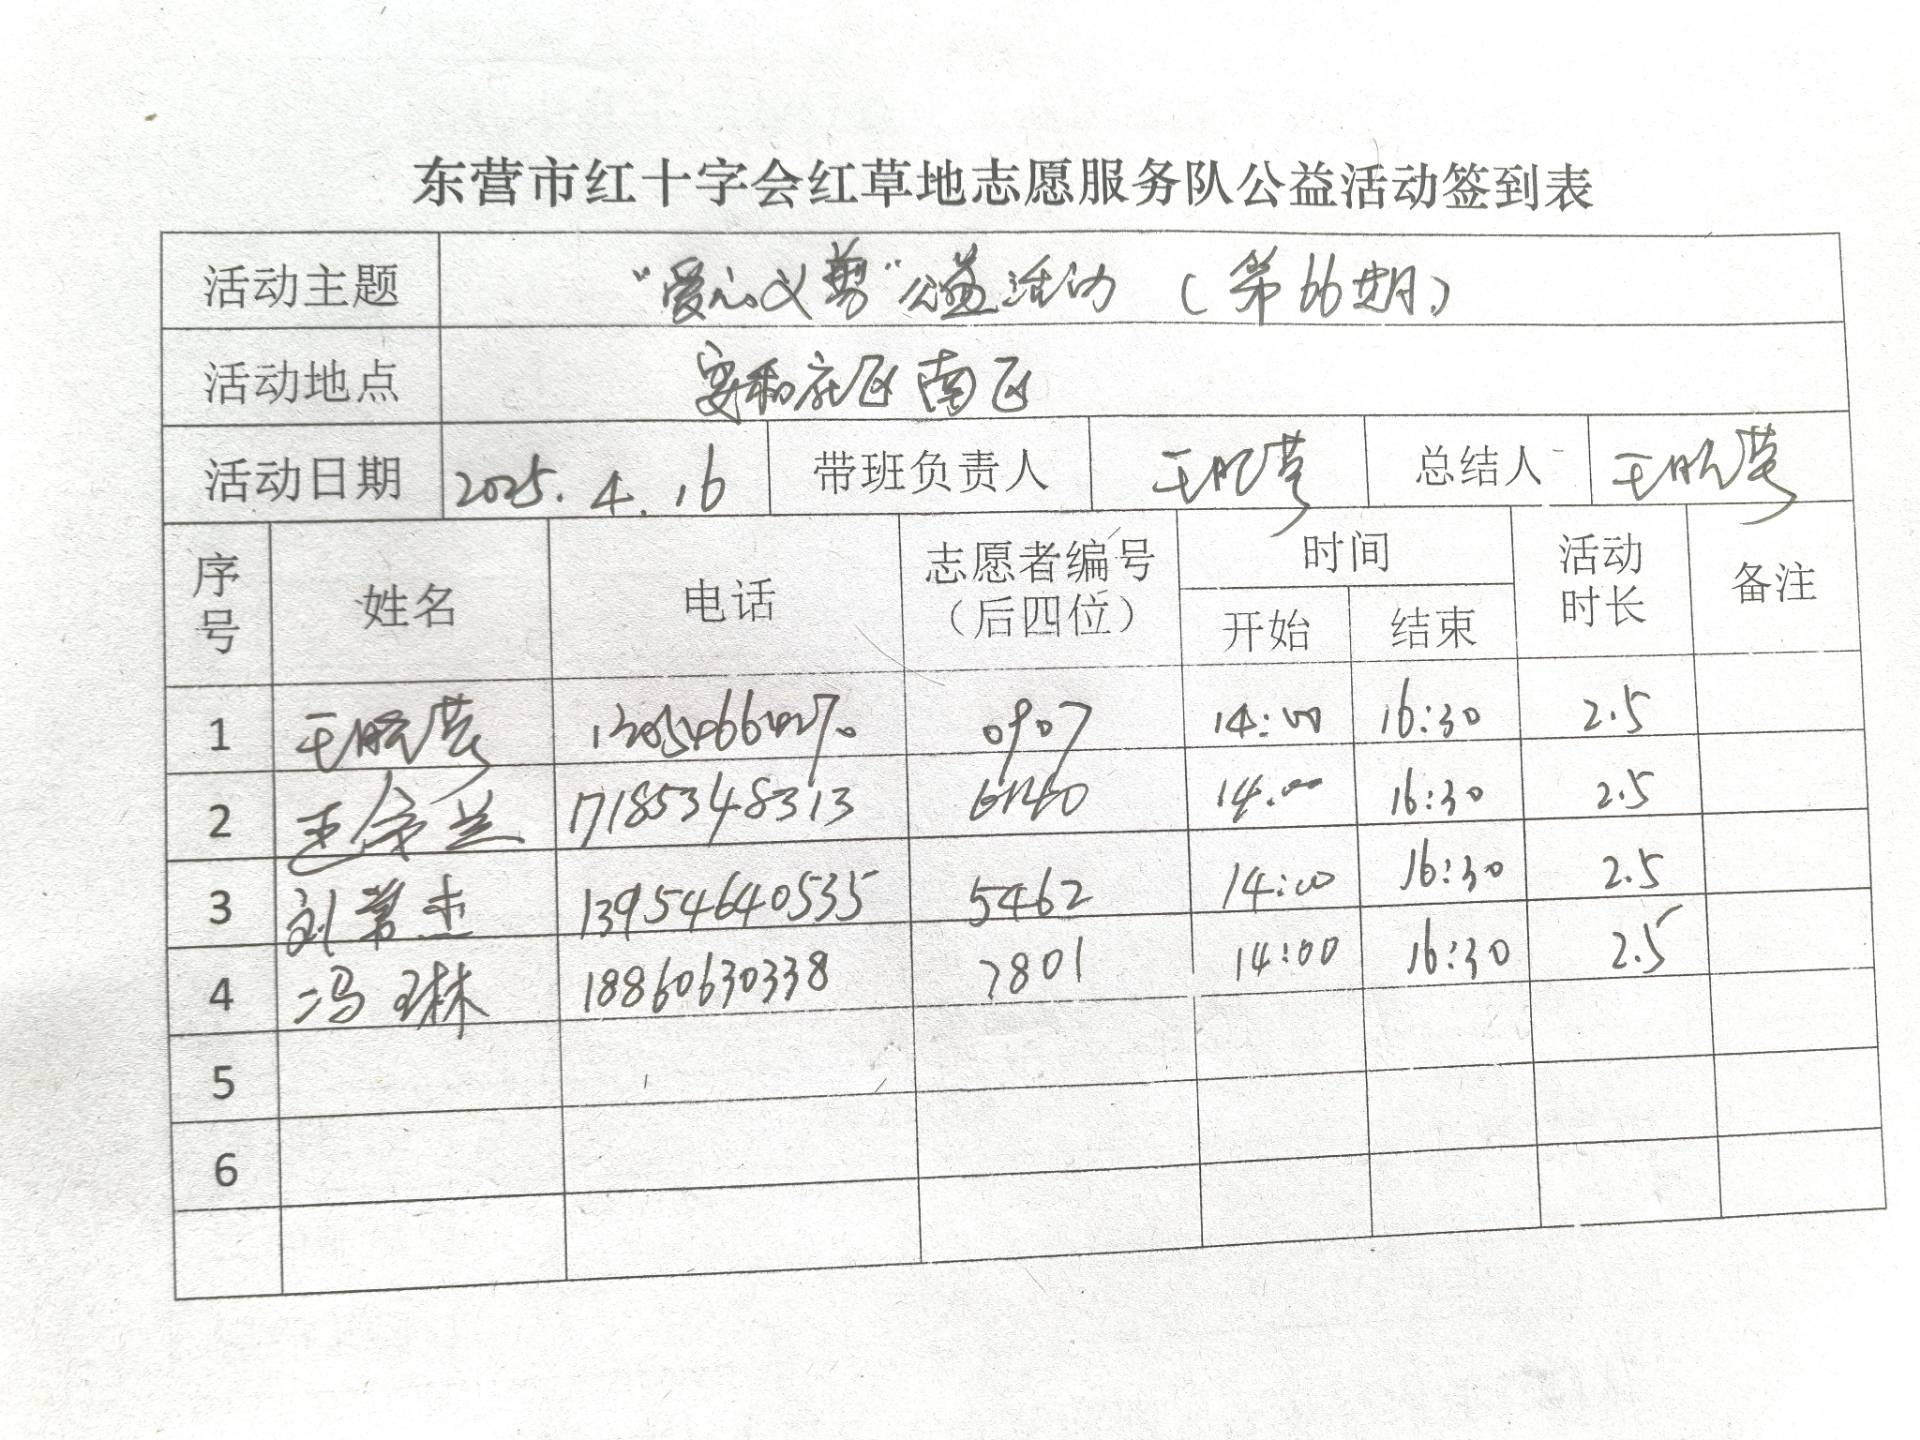 东营市红十字会红草地志愿服务队公益活动签到表
活动主题 “爱心义剪”公益活动（第66期）
活动地点 安和社区南区
活动日期 2025.4.16 带班负责人 王晓营 总结人 王晓营
序号 姓名 电话 志愿者编号（后四位） 时间 活动时长 备注
开始 结束
1 王晓营 0907 14:00 16:30 2.5
2 17185348313 14:00 16:30 2.5
3 刘常杰 13954640535 5462 14:00 16:30 2.5
4 冯琳 18860630338 7801 14:00 16:30 2.5
5
6